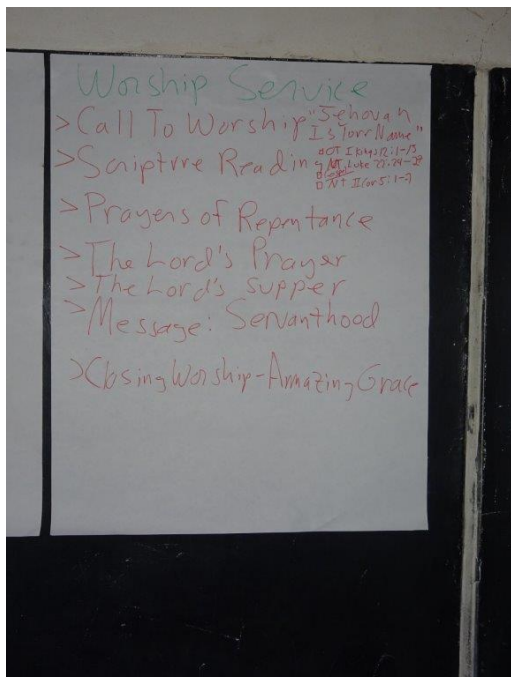 Worship Service
> Call To Worship "Jehovah
Is Your Name"
> Scripture Reading
OT I Kings 12:1-15
NT Luke 22:24-
Gospel
NT II Cor 5:1-
> Prayers of Repentance
> The Lord's Prayer
> The Lord's Supper
> Message: Servanthood
> Closing Worship-Amazing Grace